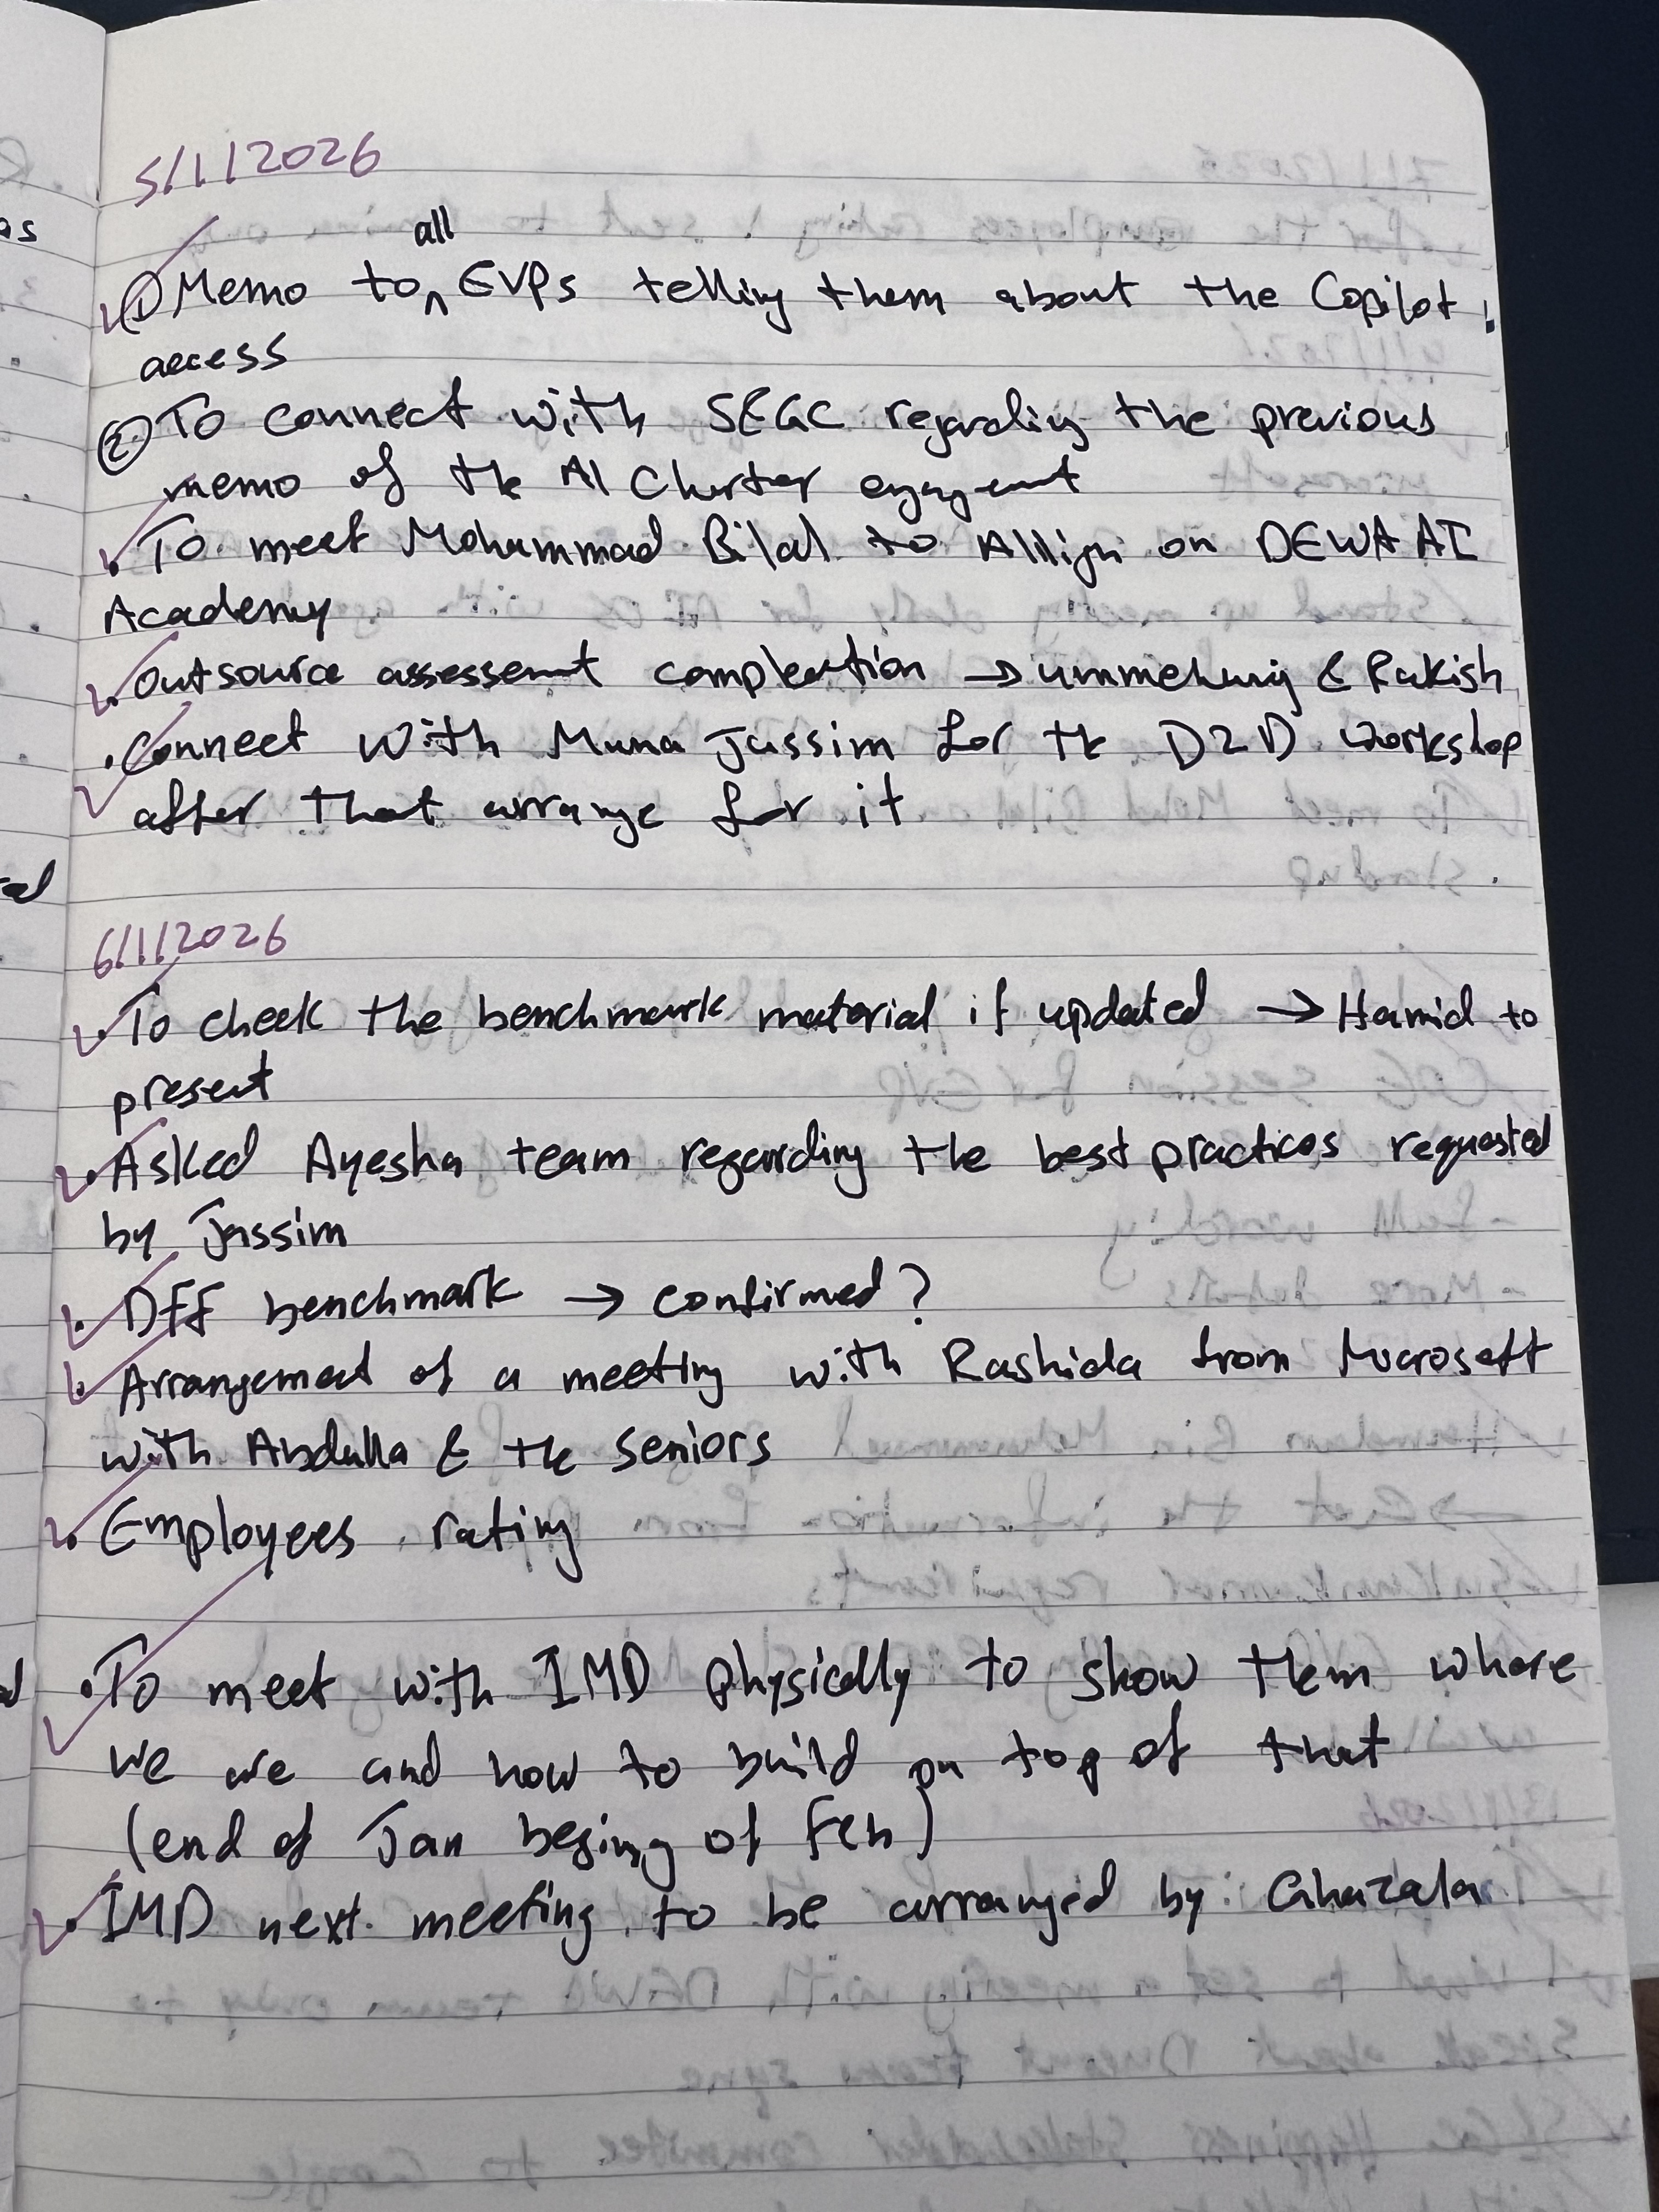 5/1/2026
all
① Memo to ^ EVPs telling them about the Copilot
access
② To connect with SEGC regarding the previous
memo of the AI Charter
. To meet Mohammad Bilal to Allign on DEWA AI
Academy
. Outsource → & Rakish
. Connect with Muna Jassim for the D2D workshop
after that arrange for it
6/1/2026
. To check the benchmark material if updated → Hamid to
present
. Asked Ayesha team regarding the best practices requested
by Jassim
. DFF benchmark → confirmed?
. Arrangement of a meeting with Rashida from Microsoft
with Abdulla & the seniors
. Employees rating
. To meet with IMD physically to show them where
we are and how to build on top of that
(end of Jan begining of Feb)
. IMD next meeting to be arranged by: Ghazala